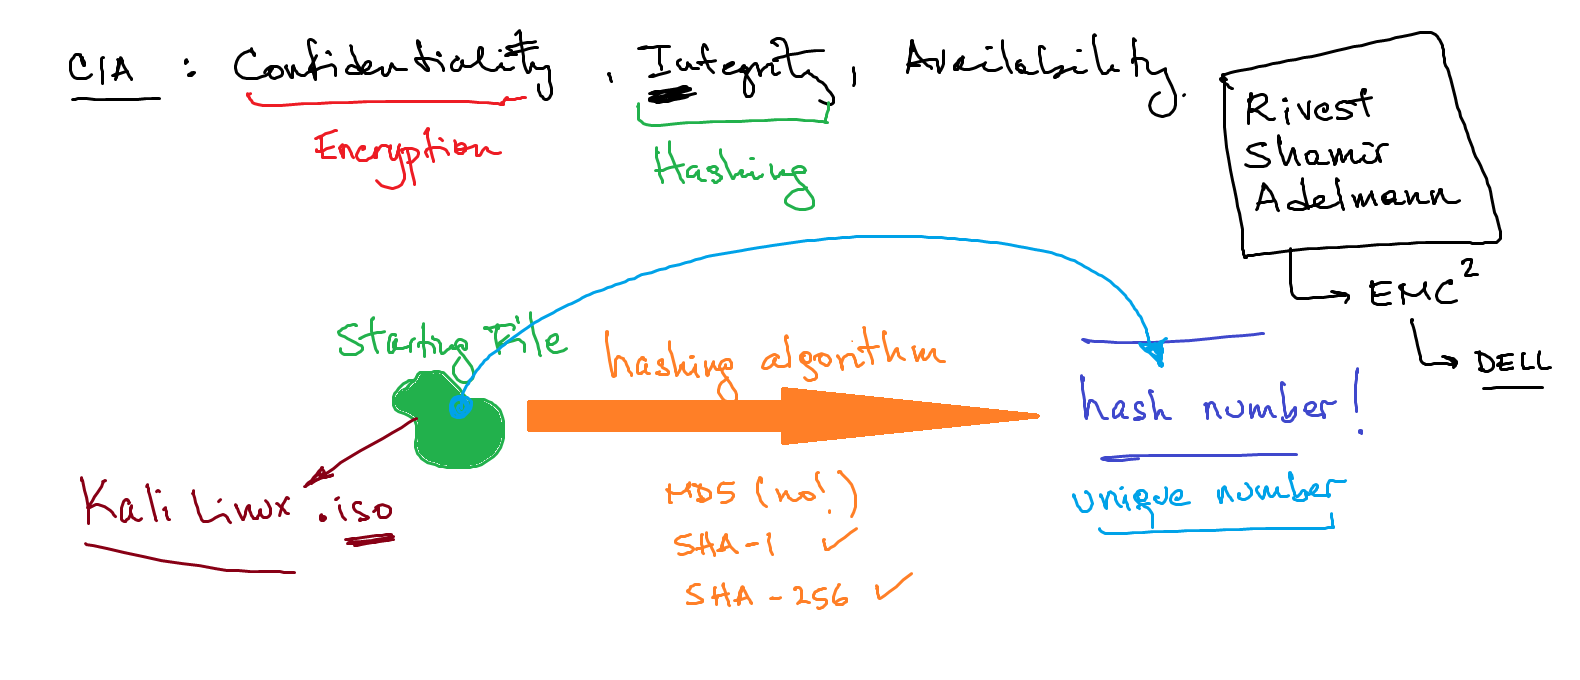 CIA : Confidentiality , Integrity, Availability.
Encryption
Hashing
Rivest
Shamir
Adelmann
EMC²
DELL
Starting File
hashing algorithm
hash number!
unique number
Kali Linux .iso
MD5 (no!)
SHA-1 ✓
SHA-256 ✓